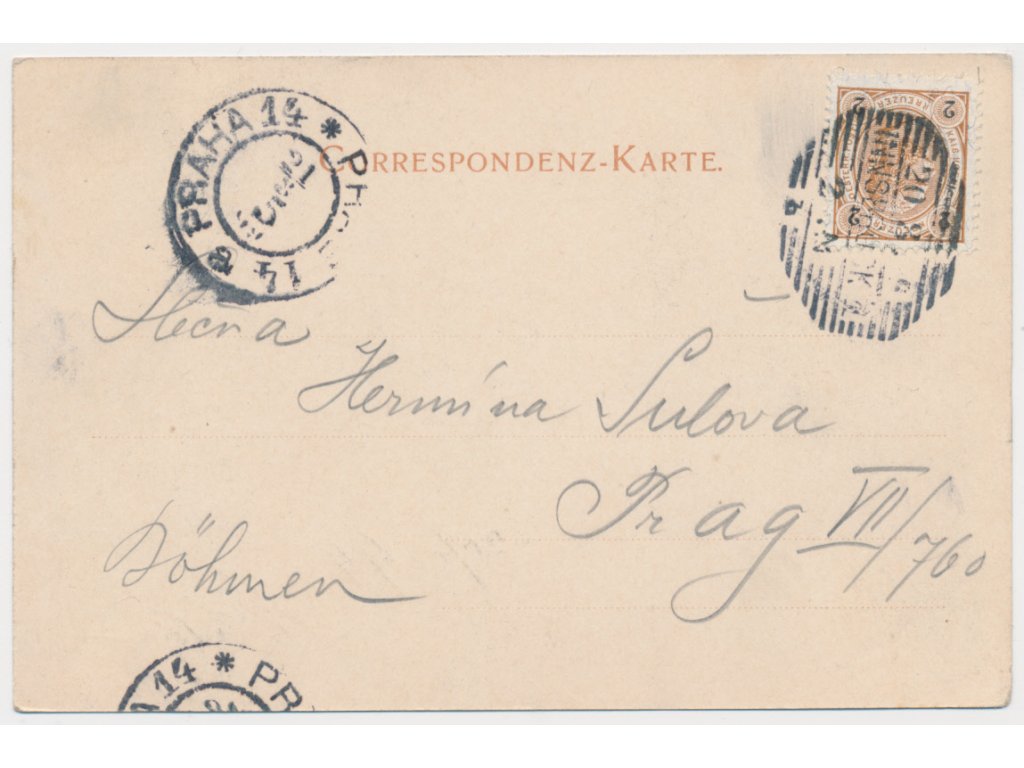 PRAHA 14 * PRA
14 a
CORRESPONDENZ-KARTE.
2 KREUZER 2
20
2
Slecna
Hermína Sulova
Prag VII/760
Böhmen
A 14 * PR